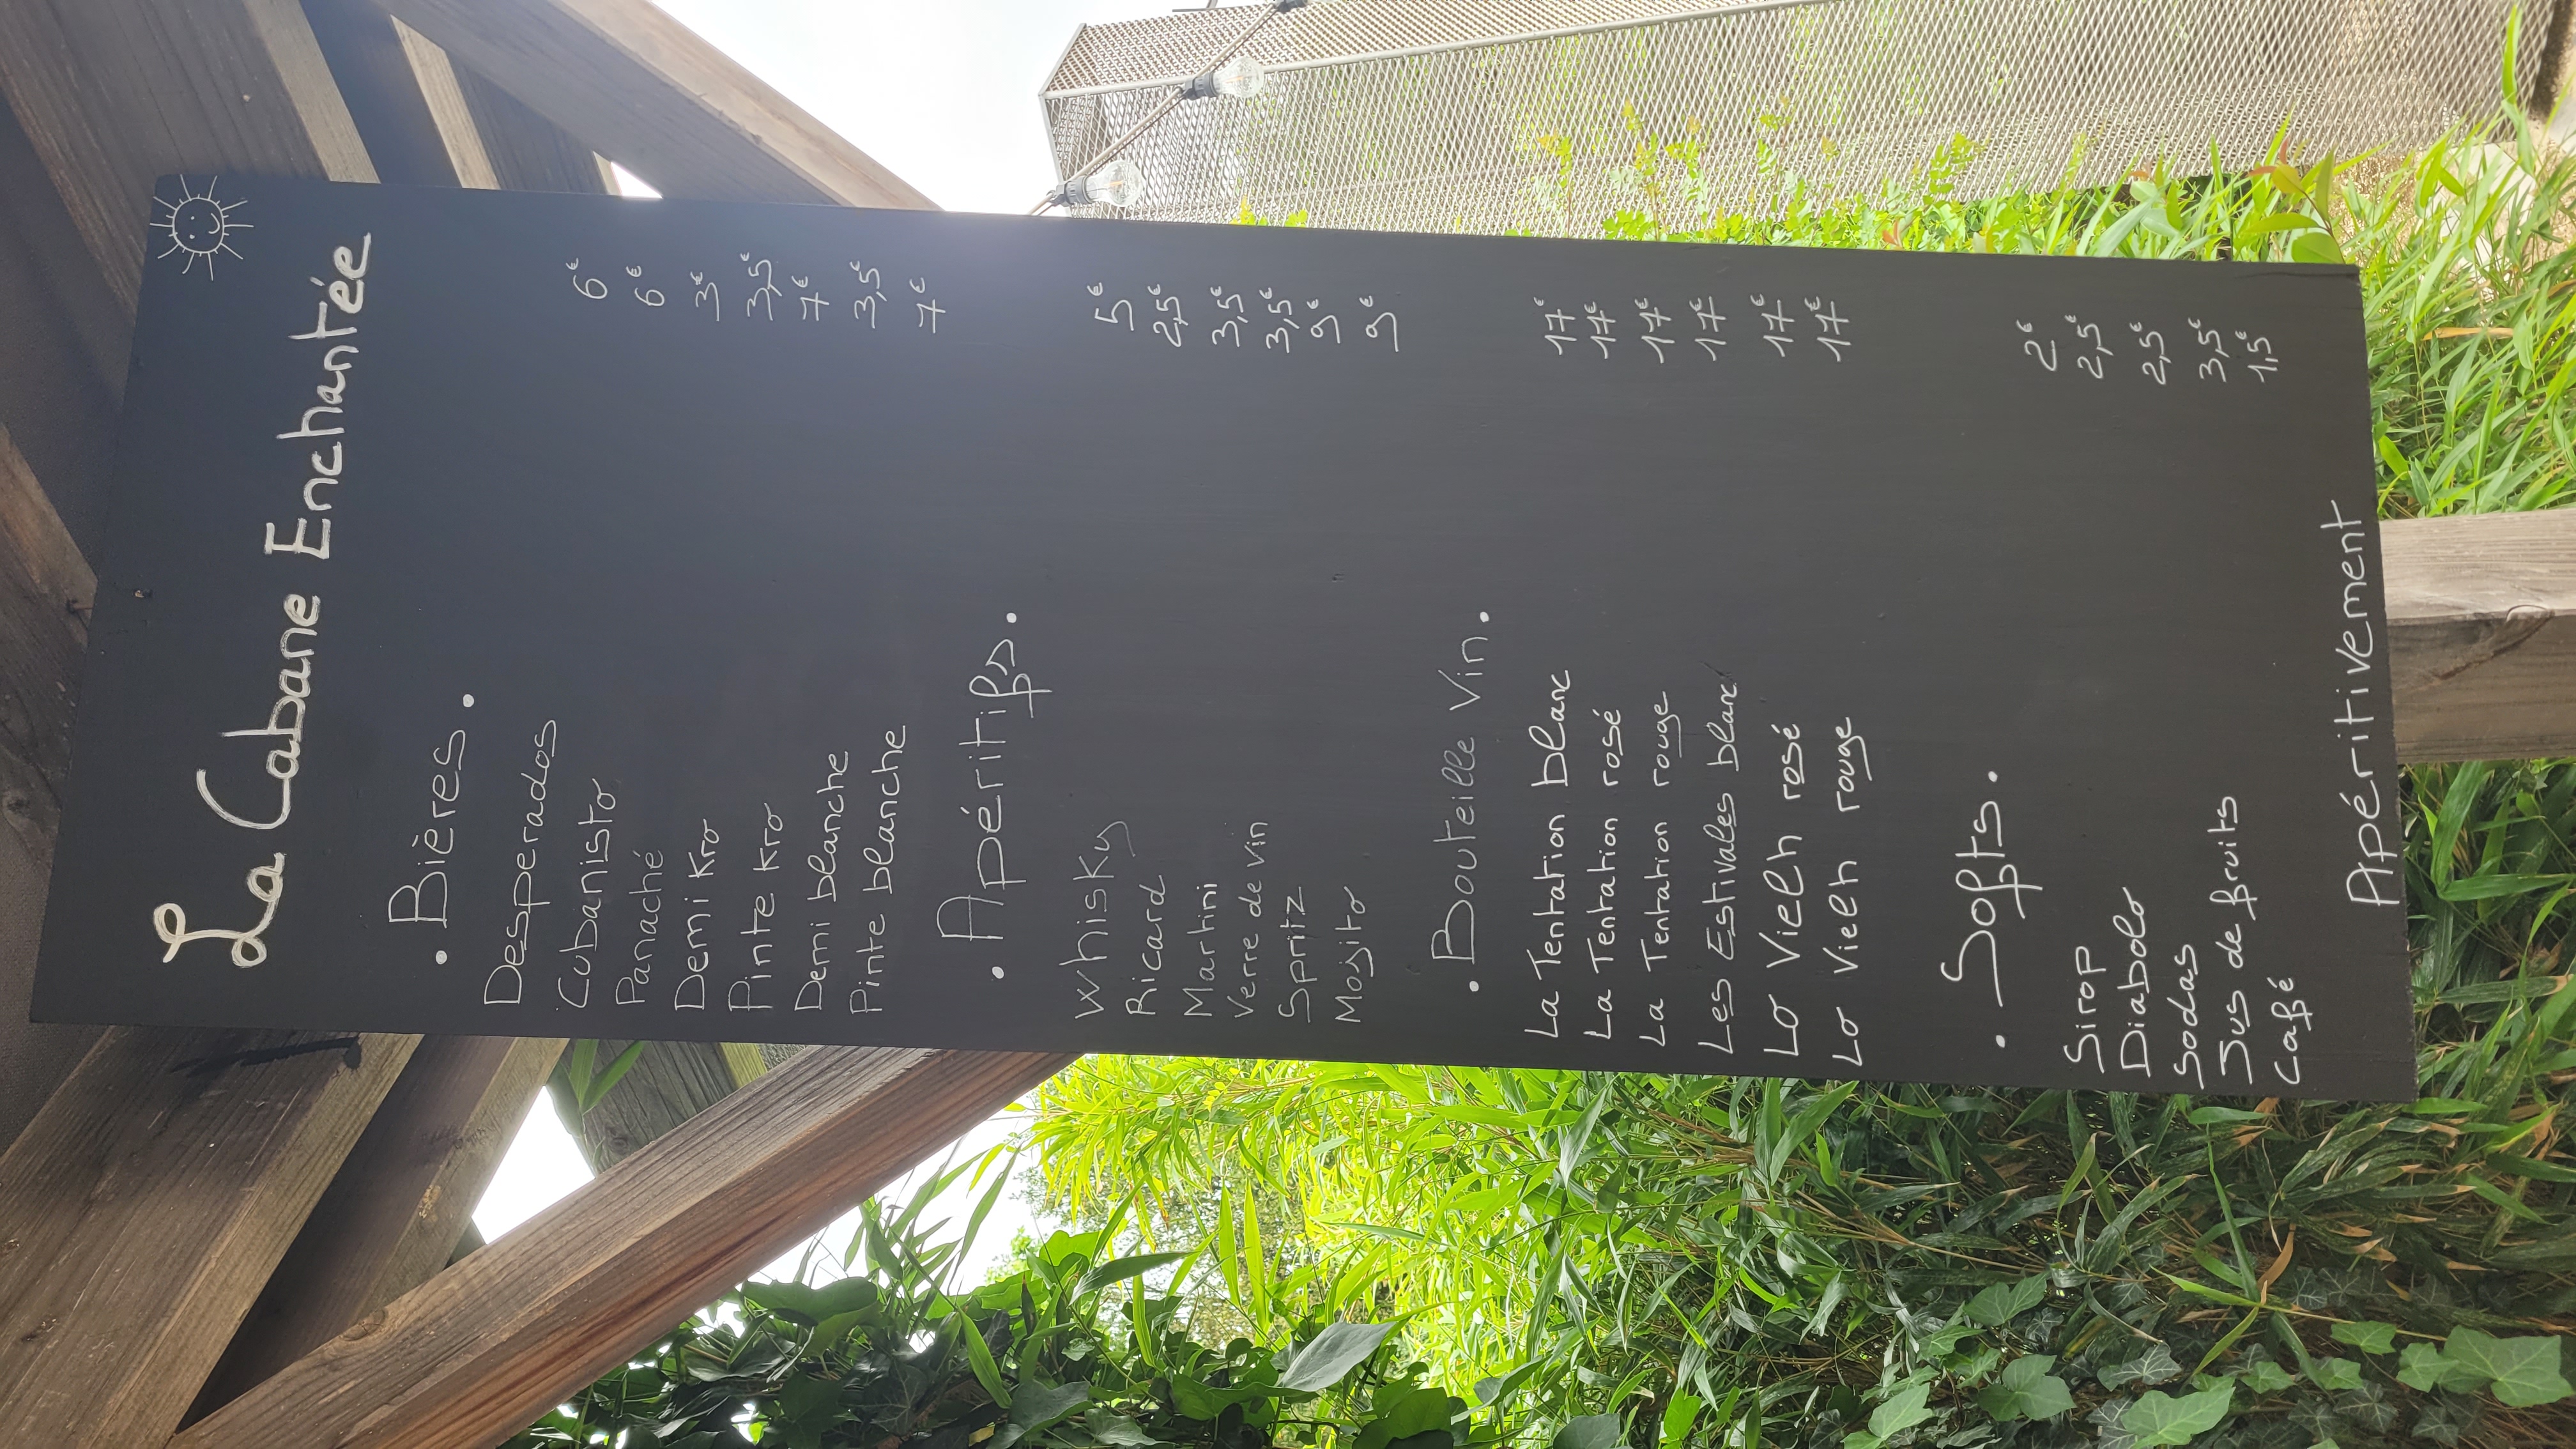 La Cabane Enchantée
. Bières .
Desperados 6€
Cubanisto 6€
Panaché 3€
Demi Kro 3,5€
Pinte Kro 7€
Demi blanche 3,5€
Pinte blanche 7€
. Apéritifs .
Whisky 5€
Ricard 2,5€
Martini 3,5€
Verre de vin 3,5€
Spritz 9€
Mojito 9€
. Bouteille Vin .
La Tentation blanc 17€
La Tentation rosé 17€
La Tentation rouge 17€
Les Estivales blanc 17€
Lo Vielh rosé 17€
Lo Vielh rouge 17€
. Softs .
Sirop 2€
Diabolo 2,5€
Sodas 2,5€
Jus de fruits 3,5€
Café 1,5€
Apéritivement